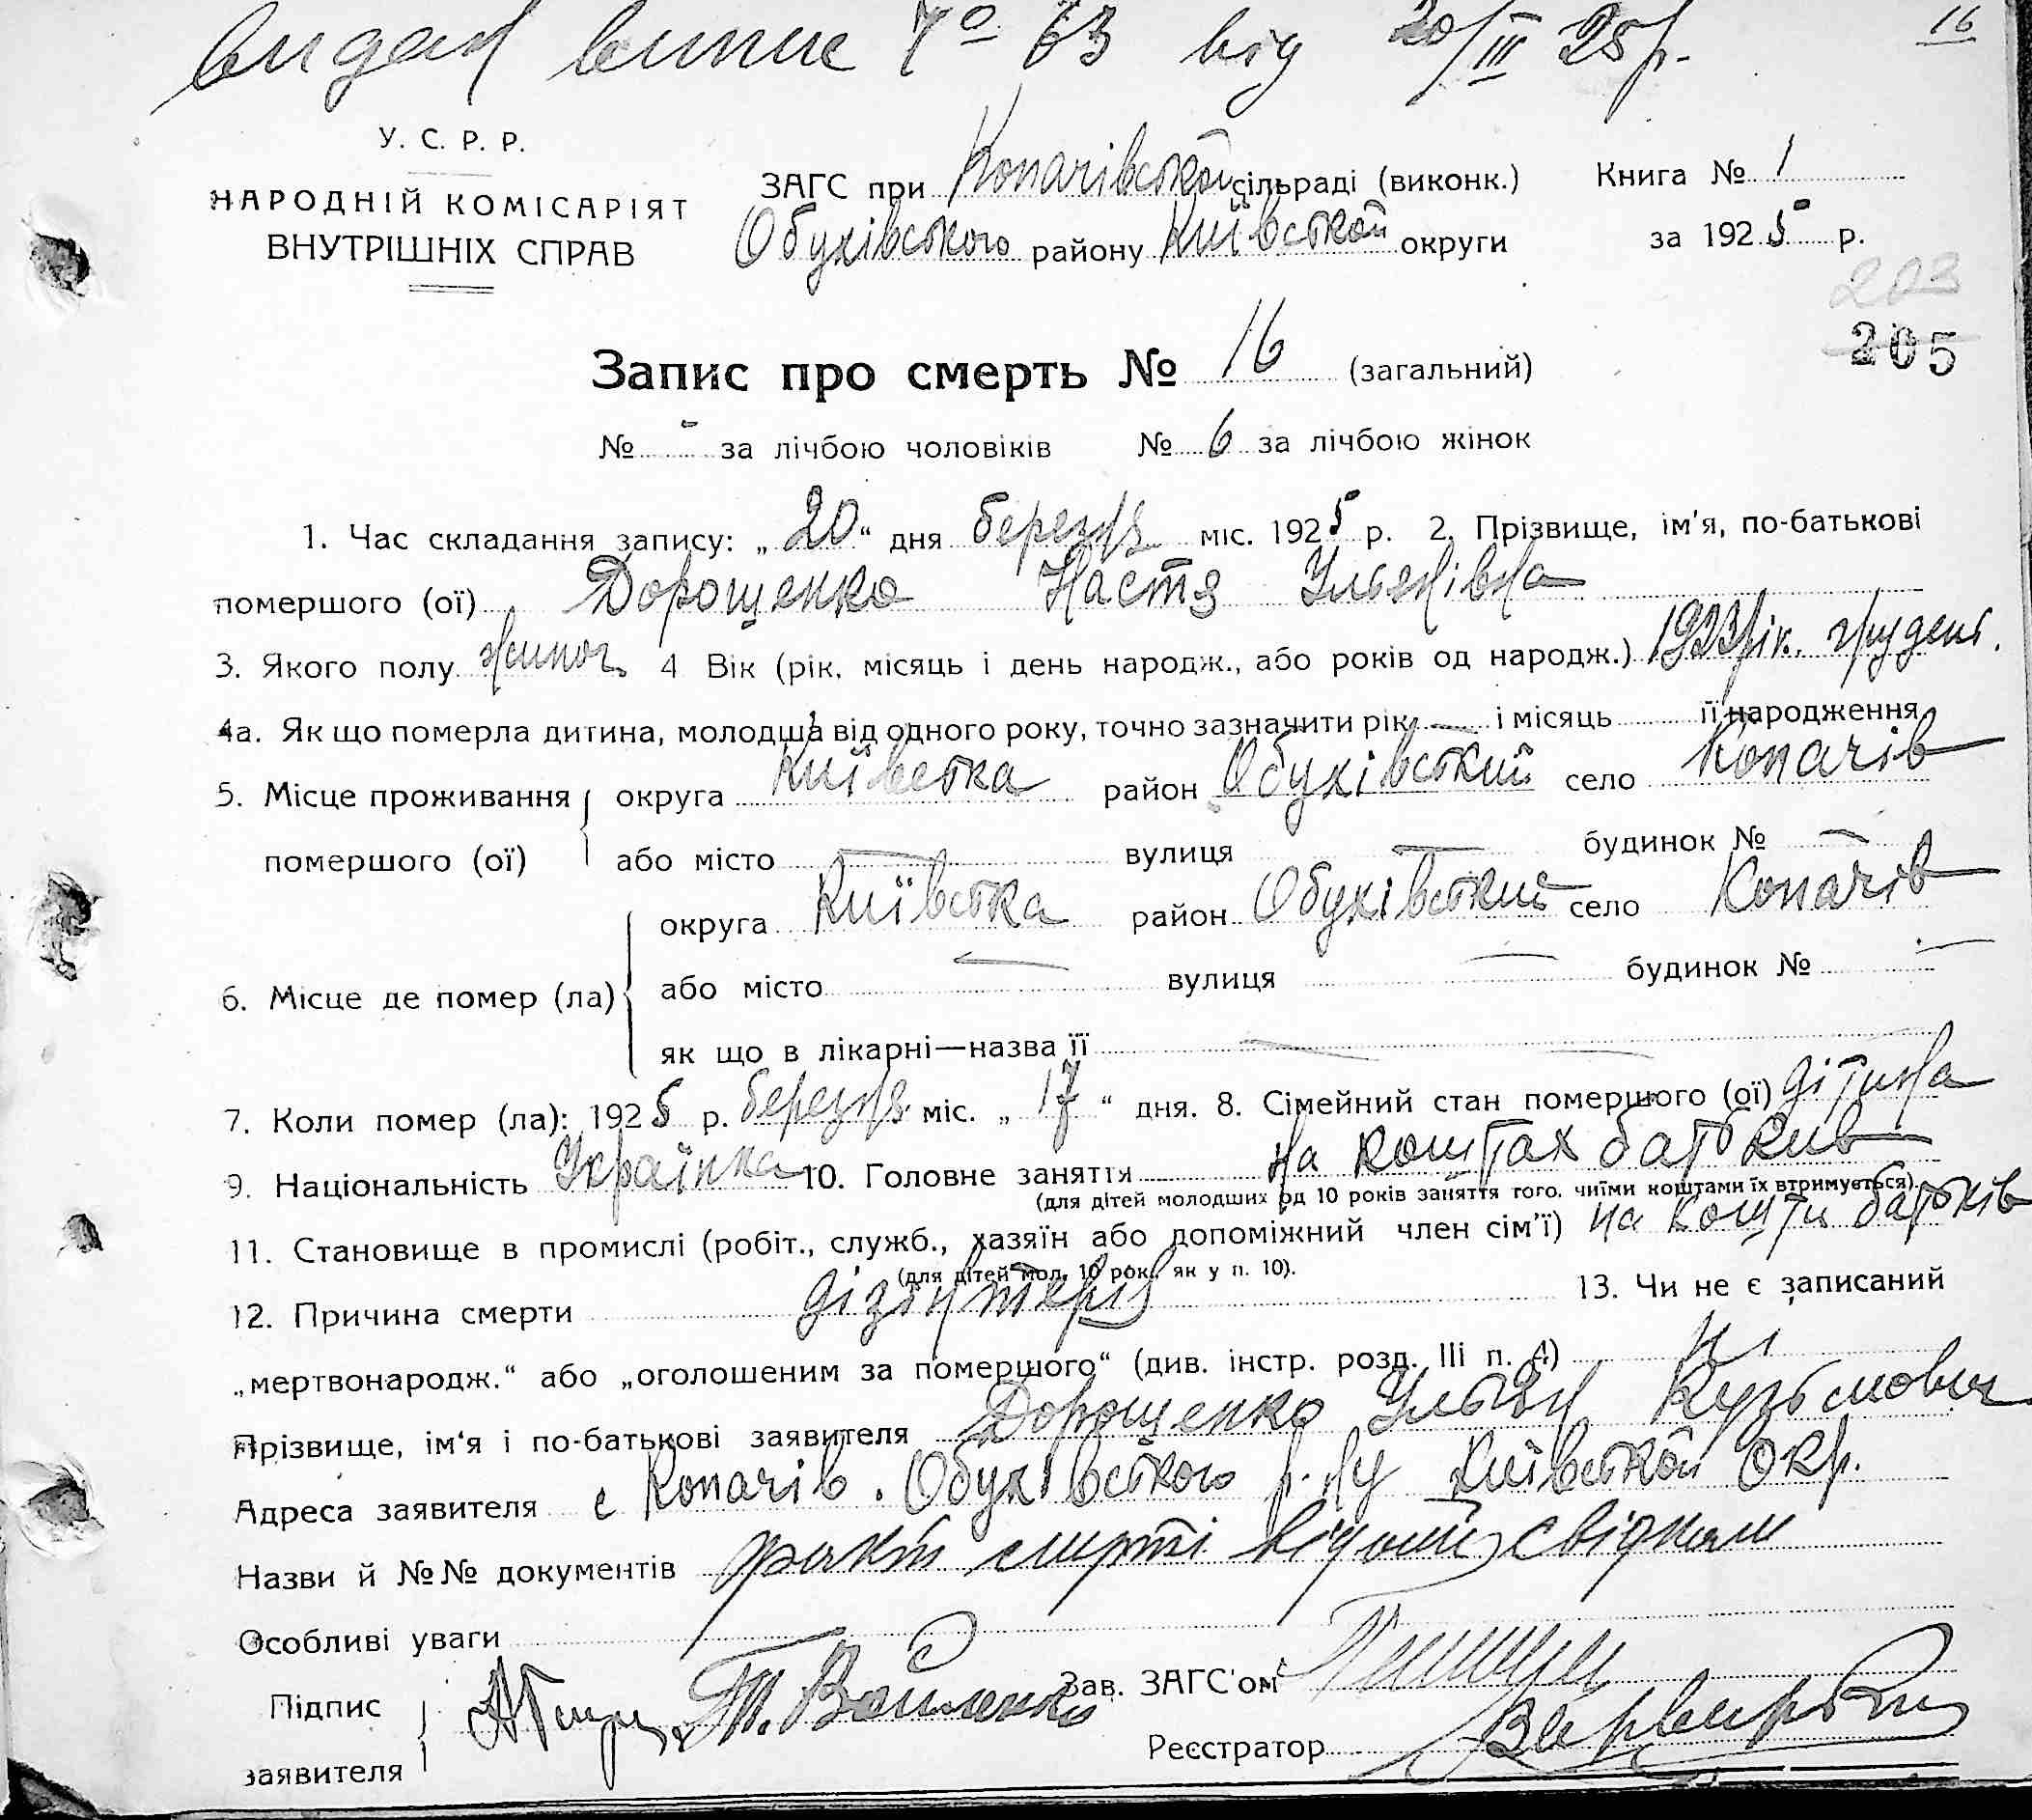 видан випис № 63 від 20/III 25 р.
16
У. С. Р. Р.
НАРОДНІЙ КОМІСАРІЯТ
ВНУТРІШНІХ СПРАВ
ЗАГС при Копачівської сільраді (виконк.)
Обухівського району Київської округи
Книга № 1
за 1925 р.
203
205
Запис про смерть № 16 (загальний)
№ - за лічбою чоловіків № 6 за лічбою жінок
1. Час складання запису: „20“ дня березня міс. 1925 р. 2. Прізвище, ім'я, по-батькові
помершого (ої) Дорощенко Настя Ульянівна
3. Якого полу жиноч. 4 Вік (рік, місяць і день народж., або років од народж.) 1923 рік. грудень.
4а. Як що померла дитина, молодша від одного року, точно зазначити рік — і місяць її народження
5. Місце проживання помершого (ої) округа Київська район Обухівський село Копачів
або місто — вулиця — будинок № —
6. Місце де помер (ла) округа Київська район Обухівський село Копачів
або місто — вулиця — будинок № —
як що в лікарні—назва її —
7. Коли помер (ла): 1925 р. березня міс. „17“ дня. 8. Сімейний стан помершого (ої) дітина
9. Національність Українка 10. Головне заняття на коштах батьків
(для дітей молодших од 10 років заняття того, чиїми коштами їх втримується).
11. Становище в промислі (робіт., служб., хазяїн або допоміжний член сім'ї) на кошти батьків
(для дітей мол. 10 рок. як у п. 10).
12. Причина смерти дізінтерія 13. Чи не є записаний
„мертвонародж.“ або „оголошеним за помершого“ (див. інстр. розд. III п. 4) Ні
Прізвище, ім'я і по-батькові заявителя Дорощенко Ульян Кузьмович
Адреса заявителя с Копачів. Обухівського р-ну Київської окр.
Назви й №№ документів факт смерті відомий свідкам
Особливі уваги
Підпис заявителя
Зав. ЗАГС'ом
Реєстратор